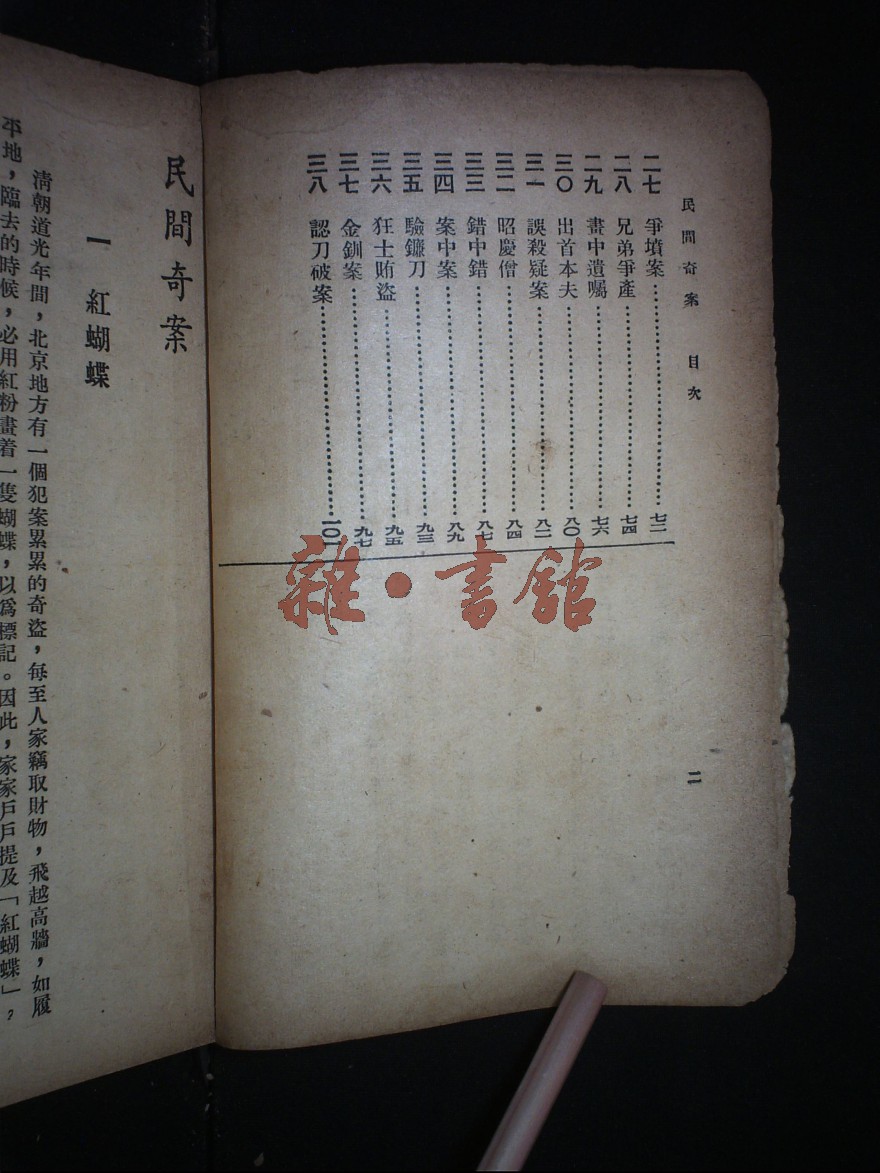 民間奇案 目次
二七 爭墳案 七二
二八 兄弟爭產 七四
二九 畫中遺囑 七六
三〇 出首本夫 八〇
三一 誤殺疑案 八二
三二 昭慶僧 八四
三三 錯中錯 八七
三四 案中案 八九
三五 驗鐮刀 九三
三六 狂士賄盜 九五
三七 金釧案 九七
三八 認刀破案 一〇一
二
雜·書館
民間奇案
一 紅蝴蝶
清朝道光年間，北京地方有一個犯案累累的奇盜，每至人家竊取財物，飛越高牆，如履
平地，臨去的時候，必用紅粉畫着一隻蝴蝶，以爲標記。因此，家家戶戶提及「紅蝴蝶」，